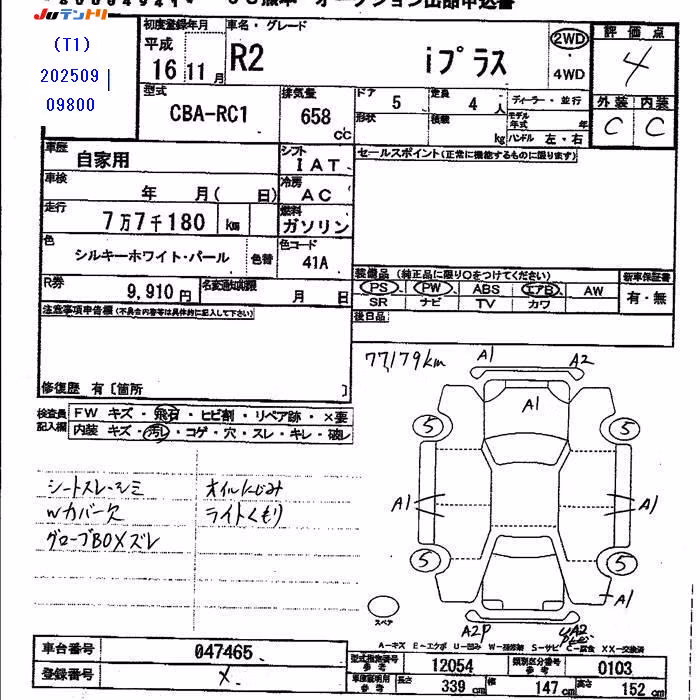 JUテントリ
オークション出品申込書
(T1)
202509
09800
初度登録年月 車名・グレード
平成 16 11月 R2 iプラス 2WD ・4WD
評価点
4
外装 内装
C C
型式 CBA-RC1 排気量 658 cc
ドア 5 定員 4人 ディーラー・並行
形状 積載 kg モデル年式 年
ハンドル 左・右
車歴 自家用 シフト IAT
セールスポイント(正常に機能するものに限ります)
車検 年 月( 日) 冷房 AC
走行 7万7千180 km 燃料 ガソリン
色 シルキーホワイト・パール 色替 色コード 41A
R券 9,910円 名変通知期限 月 日
装備品 (純正品に限り○をつけてください) 新車保証書
PS PW ABS エアB AW 有・無
SR ナビ TV カワ
後日品
注意事項申告欄(不具合内容等は具体的に記入して下さい)
修復歴 有〔箇所 〕
77,179km
A1 A2
A1
5 5
A1 A1
5 5
A1
スペア
A2P
A2
検査員記入欄
FW キズ・飛石・ヒビ割・リペア跡・×要
内装 キズ・汚レ・コゲ・穴・スレ・キレ・破レ
シートスレ・シミ オイルにじみ
Wカバー欠 ライトくもり
グローブBOXズレ
A-キズ E-エクボ U-凹み W-補修跡 S-サビ C-腐食 XX-交換済
車台番号 047465
登録番号 ×
型式指定番号 参考 12054 類別区分番号 参考 0103
車庫証明用 参考 長さ 339 cm 幅 147 cm 高さ 152 cm